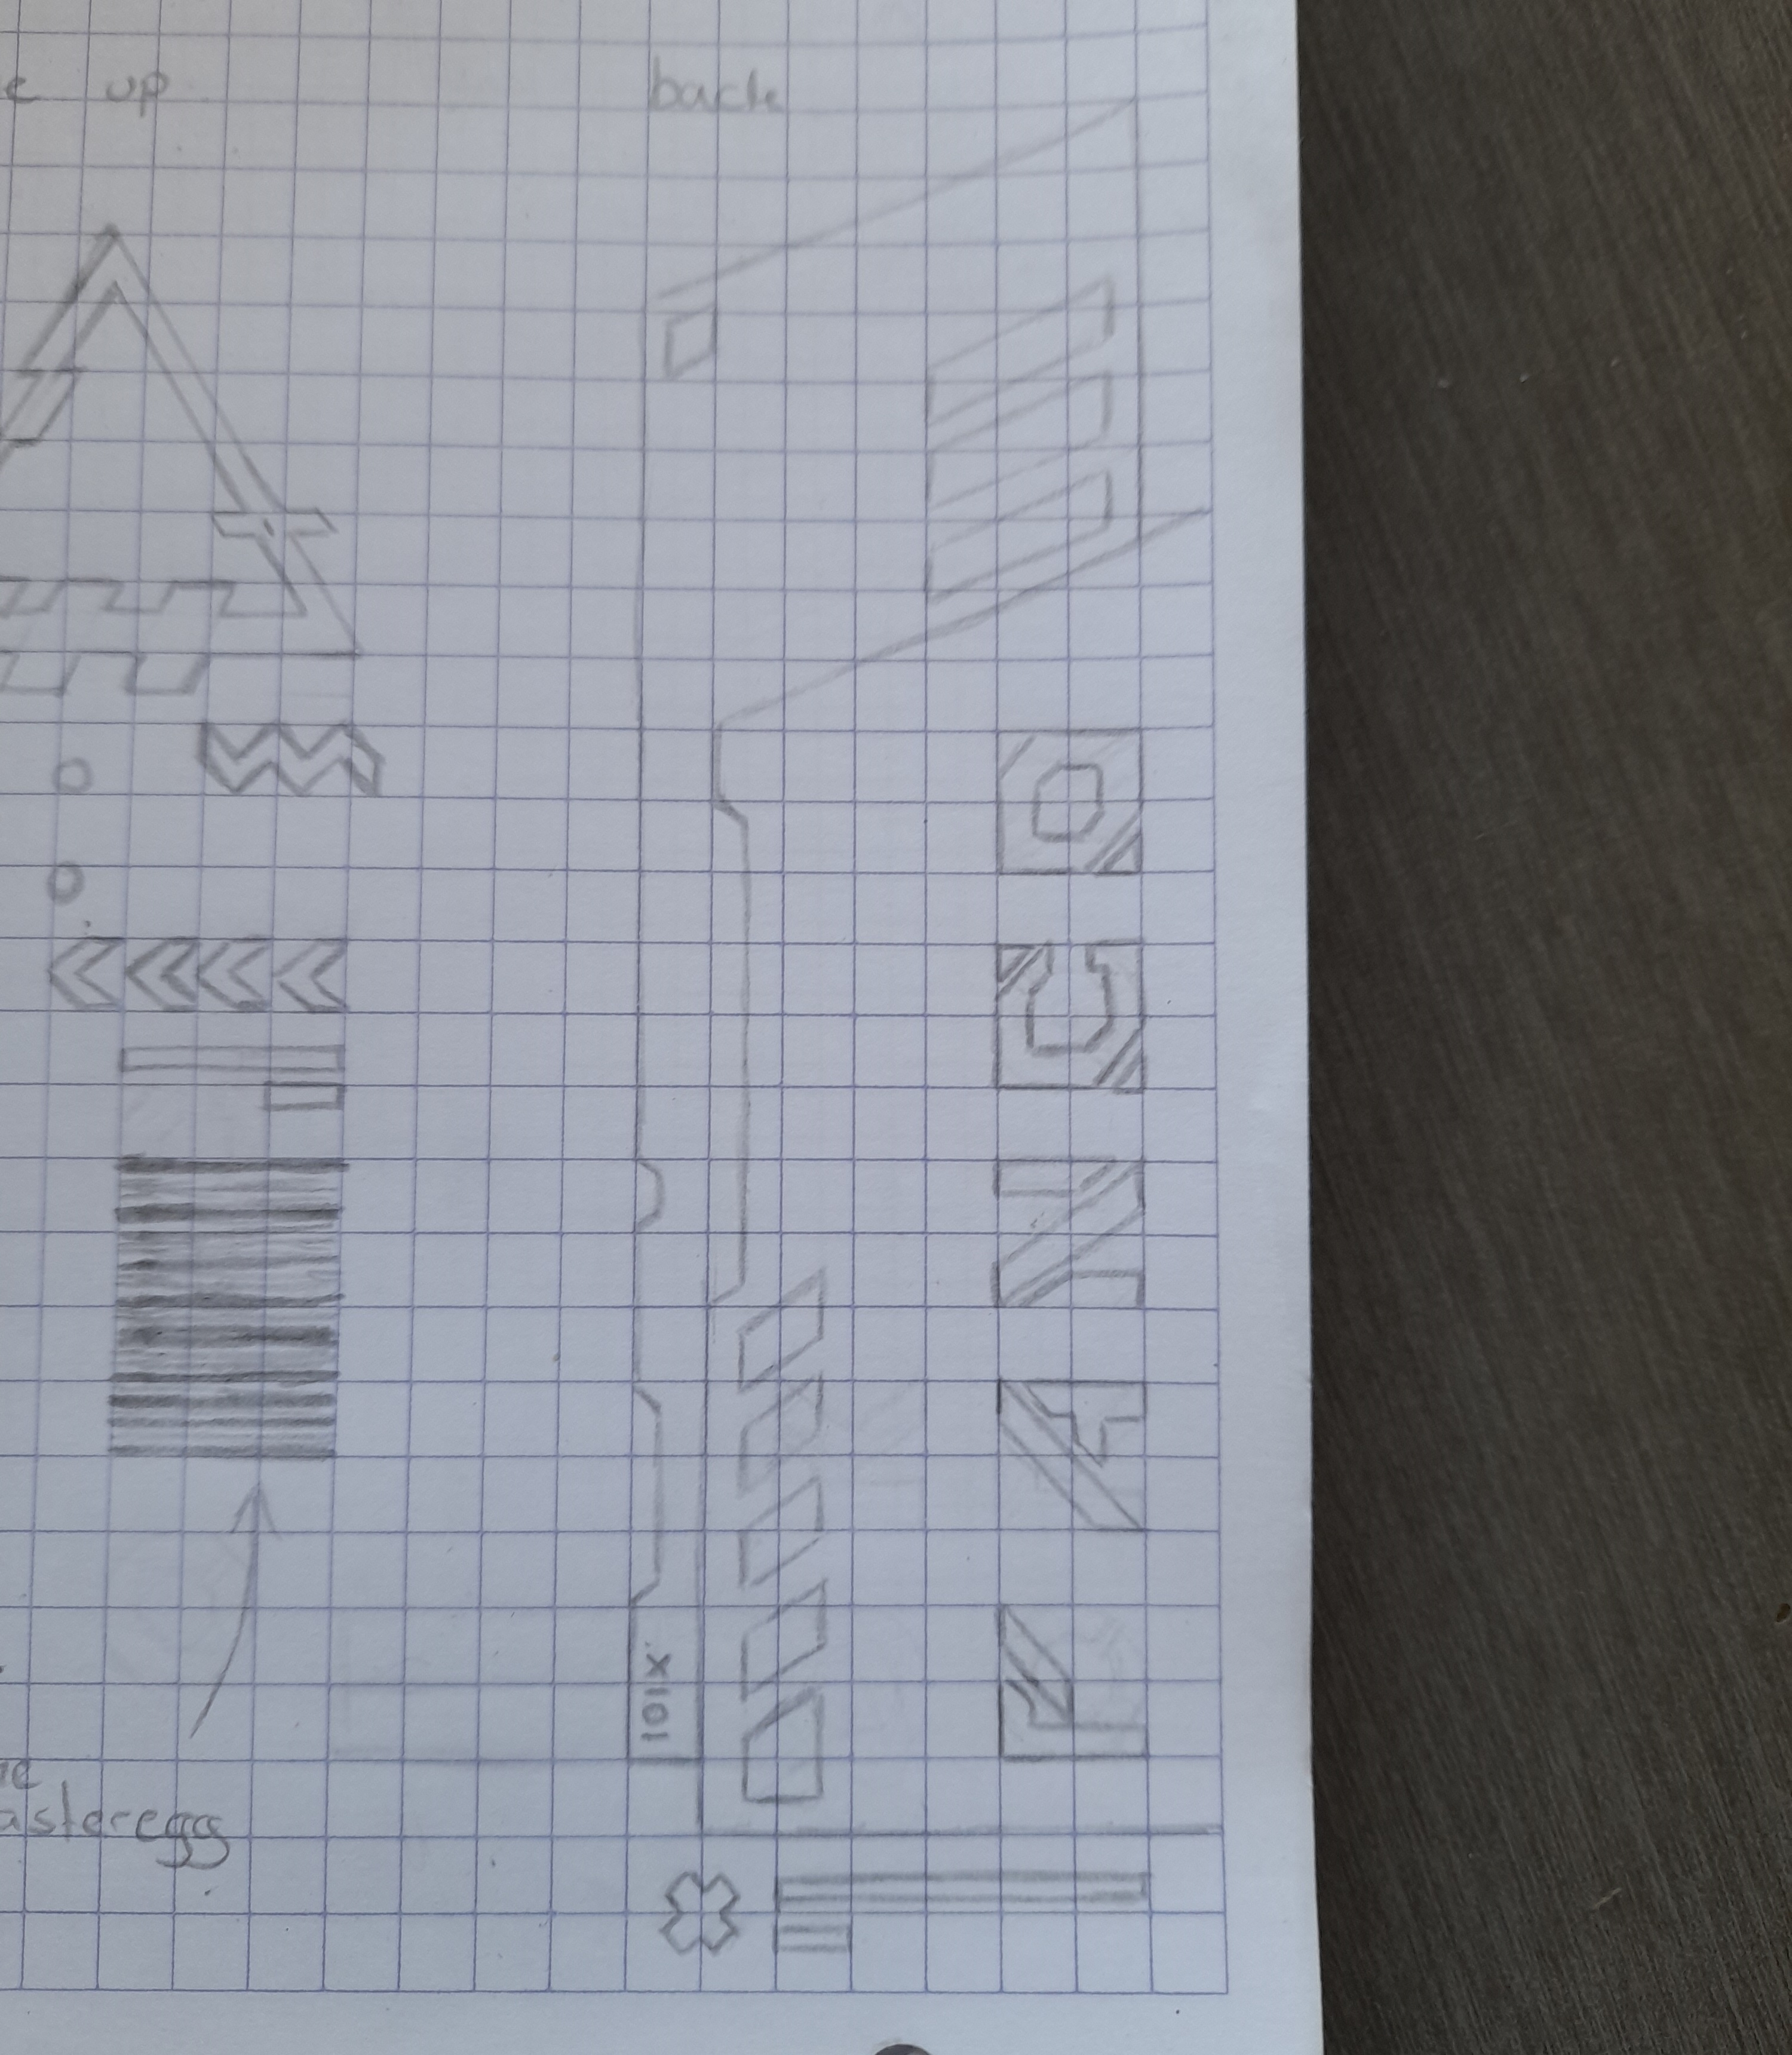 e up
back
101X
e
asteregg